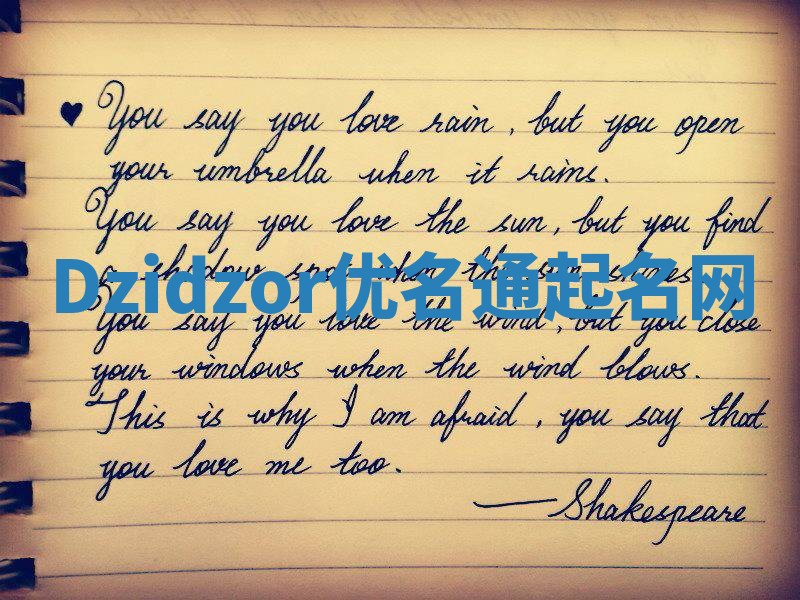 ♥ You say you love rain, but you open
your umbrella when it rains.
You say you love the sun, but you find
a shadow spot when the sun shines.
Dzidzor优名通起名网
You say you love the wind, but you close
your windows when the wind blows.
This is why I am afraid, you say that
you love me too.
—Shakespeare